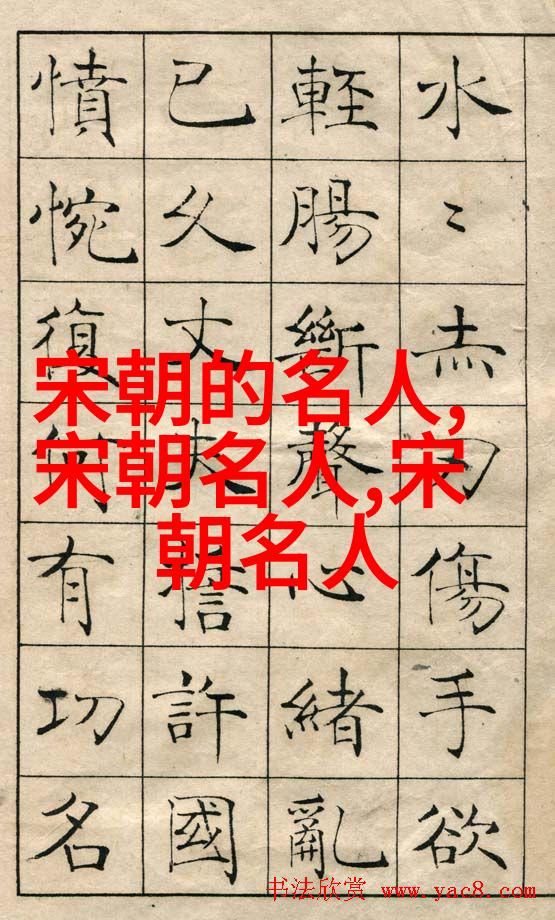 水〻赤刃傷手欲
輕腸斷聲心緒亂
已久丈夫誓許國
憤惋復何有功名
宋朝的名人,
宋朝名人,宋
朝名人
书法欣赏 www.yac8.com